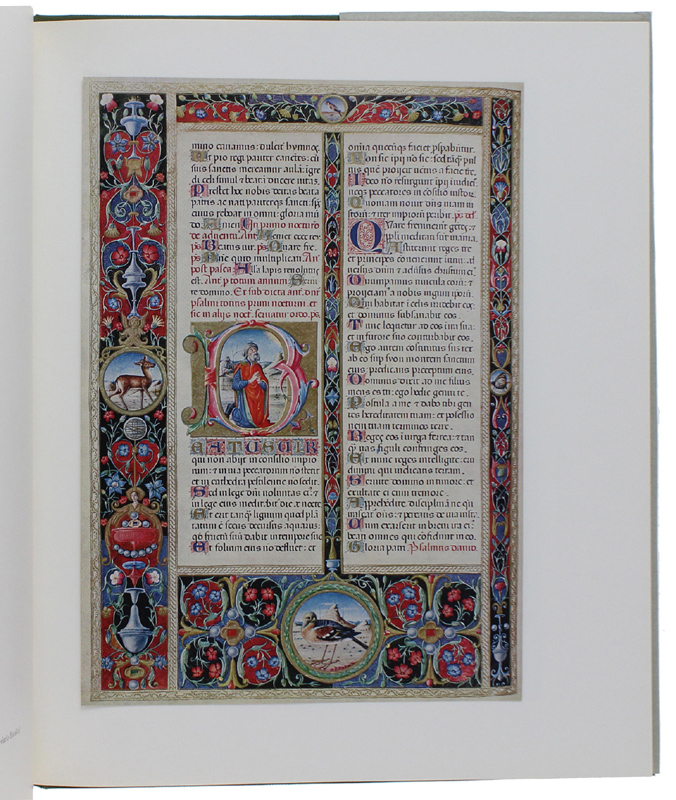 mino canamus: dulces hymnos.
Et pio regi pariter canentes: cũ
suis sanctis mereamur aulã: igre
di celi simul & beatã ducere vitas.
Prestet hoc nobis deitas beata
patris ac nati pariterqs sancti: spũ
cuius reboat in omni: gloria mũ
do. Amen. In primo nocturno
de adventu. Añ. Veniet ecce rex.
ps. Beatus vir. ps. Quare fre.
ps. Dñe quid multiplicati. Añ.
post pasca. Alla lapis revolutus
est. Añ. p totum annum. Servi
te domino. Et sub dicta añ. dñr
psalmi totius primi nocturni et
sic in alijs noct. servatur ordo. ps.
B
EATUS VIR
qui non abijt in consilio impio
rum: & in via peccatorum nõ stetit
et in cathedra pestilentie nõ sedit.
Sed in lege dñi voluntas eiꝰ: &
in lege eius meditabitur die ac nocte.
Et erit tanqȝ lignum quod plã
tatum ẽ secus decursus aquarum:
qd fructũ suũ dabit in tempore suo.
Et folium eius nõ defluet: et
omnia quecunqȝ faciet pspabũtur.
Non sic impij nõ sic: sed tãqȝ pul
vis quẽ proijcit ventus a facie tre.
Ideo nõ resurgunt impij in iudicio:
neqȝ peccatores in cõsilio iustor.
Quoniam novit dñs viam iu
stor: & iter impiorum peribit. ps.
Quare fremuerunt gẽtes: &
ppli meditati sũt inania.
Astiterunt reges tre:
et principes convenerunt in unũ: ad
versus dñm & adversus christum eiꝰ.
Dirumpamus vincula eorũ: &
proijciamus a nobis iugum ipoꝝ.
Qui habitat in celis irridebit eos:
et dominus subsannabit eos.
Tunc loquetur ad eos in ira sua:
et in furore suo conturbabit eos.
Ego autem constitutus sum rex
ab eo sup syon montem sanctum
eius: predicans preceptum eius.
Dominus dixit ad me filius
meus es tu: ego hodie genui te.
Postula a me & dabo tibi gen
tes hereditatem tuam: et possessio
nem tuam terminos terre.
Reges eos in virga ferrea: & tan
quam vas figuli confringes eos.
Et nunc reges intelligite: eru
dimini qui iudicatis terram.
Servite domino in timore: et
exultate ei cum tremore.
Apprehendite disciplinã ne qñ
irascatur dñs: & pereatis de via iusta.
Cum exarserit in brevi ira eiꝰ:
beati omnes qui cõfidunt in eo.
Gloria patri. Psalmus david.